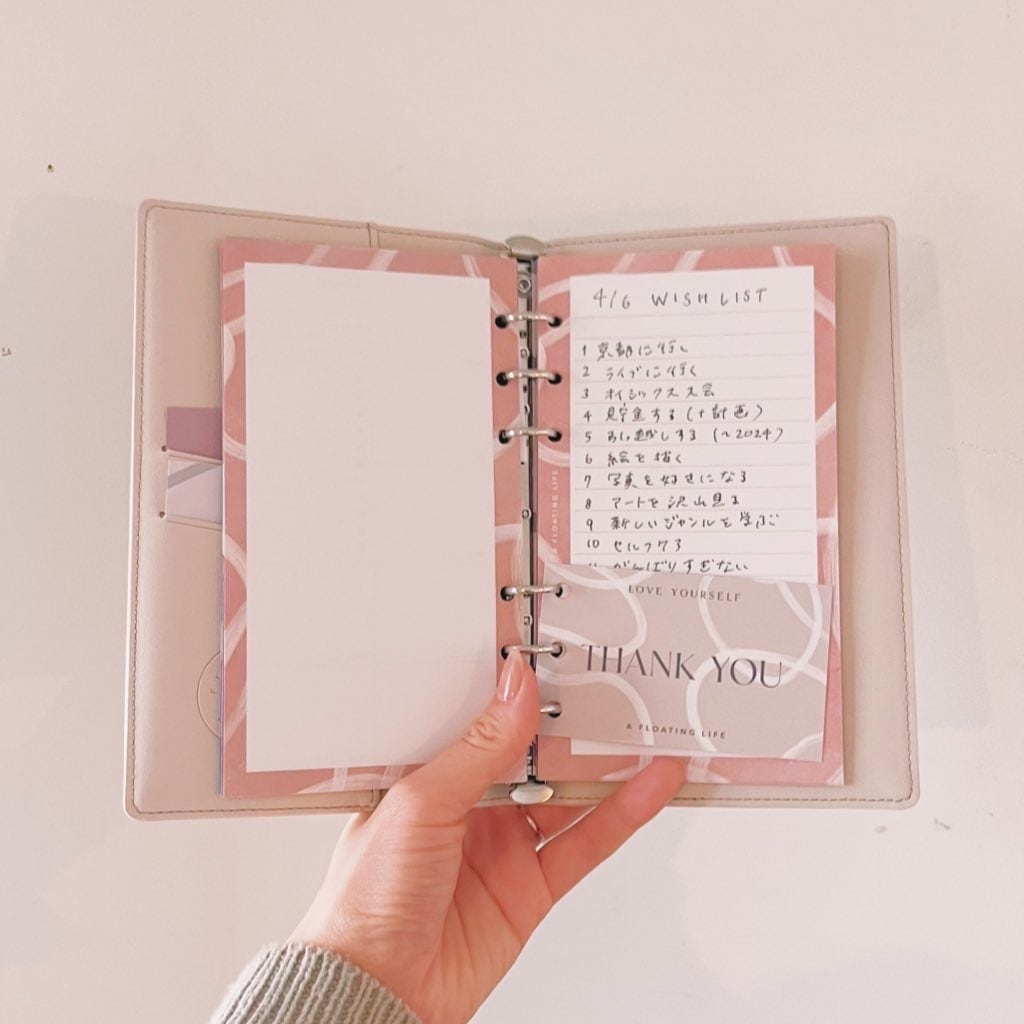 4/6 WISH LIST
1 京都に行く
2 ライブに行く
3 オイシックス大会
4 貯金する(+計画)
5 引っ越しする (~2024)
6 絵を描く
7 写真を好きになる
8 アートを沢山見る
9 新しいジャンルを学ぶ
10 セルフケア
11 がんばりすぎない
A FLOATING LIFE
LOVE YOURSELF
THANK YOU
A FLOATING LIFE